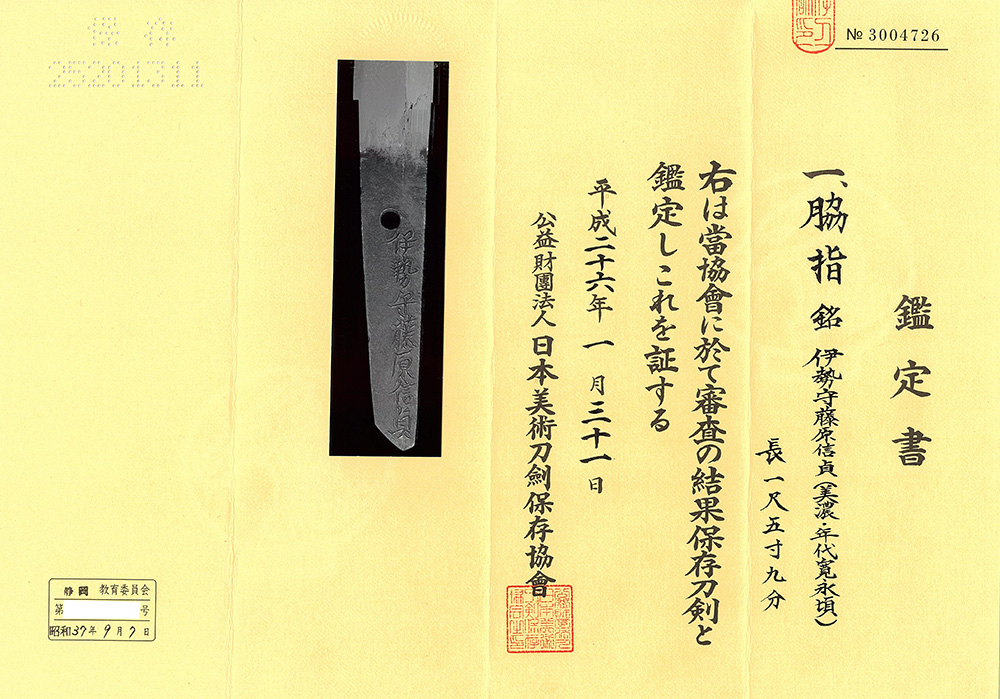 № 3004726
鑑定書
一、脇指 銘 伊勢守藤原信貞(美濃・年代寛永頃)
長一尺五寸九分
右は當協會に於て審査の結果保存刀剣と
鑑定しこれを証する
平成二十六年一月三十一日
公益財團法人日本美術刀劍保存協會
伊勢守藤原信貞
保存
25201311
静岡 教育委員会
第 号
昭和37年9月7日